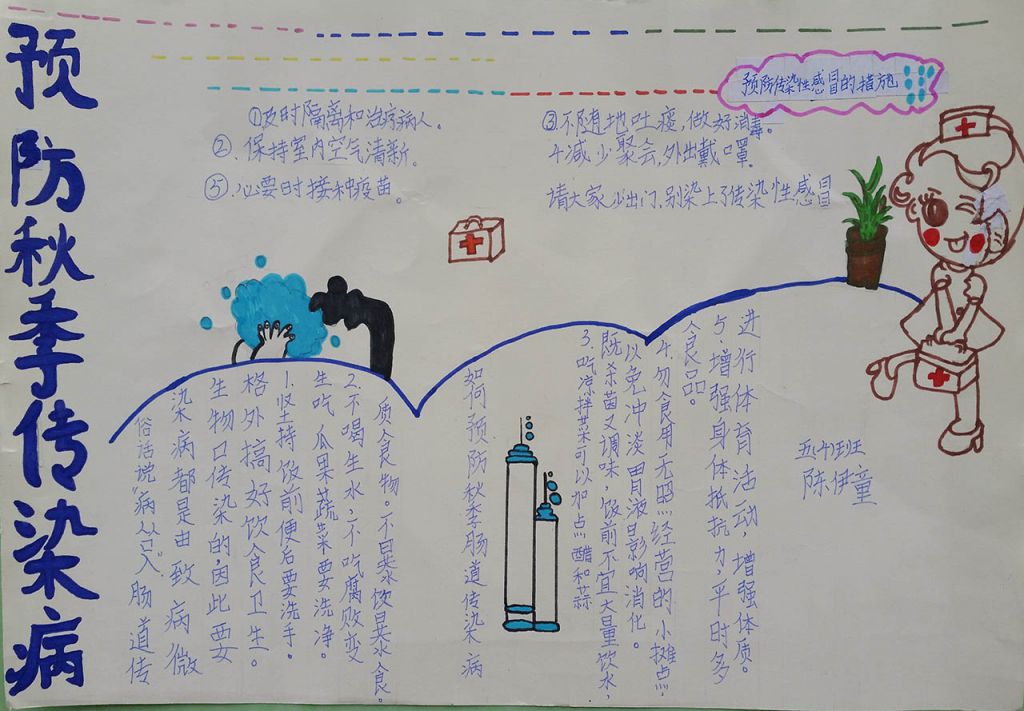 预防秋季传染病
预防传染性感冒的措施
①及时隔离和治疗病人。
②.保持室内空气清新。
⑤.必要时接种疫苗。
③不随地吐痰,做好消毒。
4减少聚会,外出戴口罩.
请大家少出门,别染上了传染性感冒
如何预防秋季肠道传染病
俗话说"病从口入".肠道传
染病都是由致病微
生物口传染的,因此要
格外搞好饮食卫生。
1.坚持饭前便后要洗手。
生吃瓜果蔬菜要洗净。
2.不喝生水,不吃腐败变
质食物。不暴饮暴食.
3.吃凉拌菜可以加点醋和蒜
既杀菌又调味.饭前不宜大量饮水,
以免冲淡胃液影响消化。
4.勿食用无照经营的小摊点,
食品。
5.增强身体抵抗力,平时多
进行体育活动,增强体质。
五(4)班
陈伊童